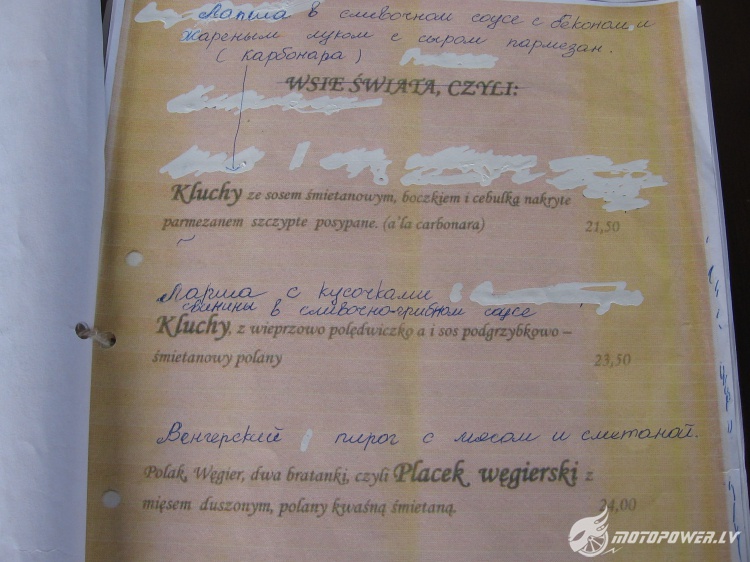 Лапша в сливочном соусе с беконом и
жареным луком с сыром пармезан.
( карбонара )
WSIE ŚWIATA, CZYLI:
Kluchy ze sosem śmietanowym, boczkiem i cebulką nakryte
parmezanem szczypte posypane. (a'la carbonara) 21,50
Лапша с кусочками
свинины в сливочно-грибном соусе
Kluchy, z wieprzowo polędwiczko a i sos podgrzybkowo –
śmietanowy polany 23,50
Венгерский пирог с мясом и сметаной.
Polak, Węgier, dwa bratanki, czyli Placek węgierski z
mięsem duszonym, polany kwaśną śmietaną. 24,00
MOTOPOWER.LV